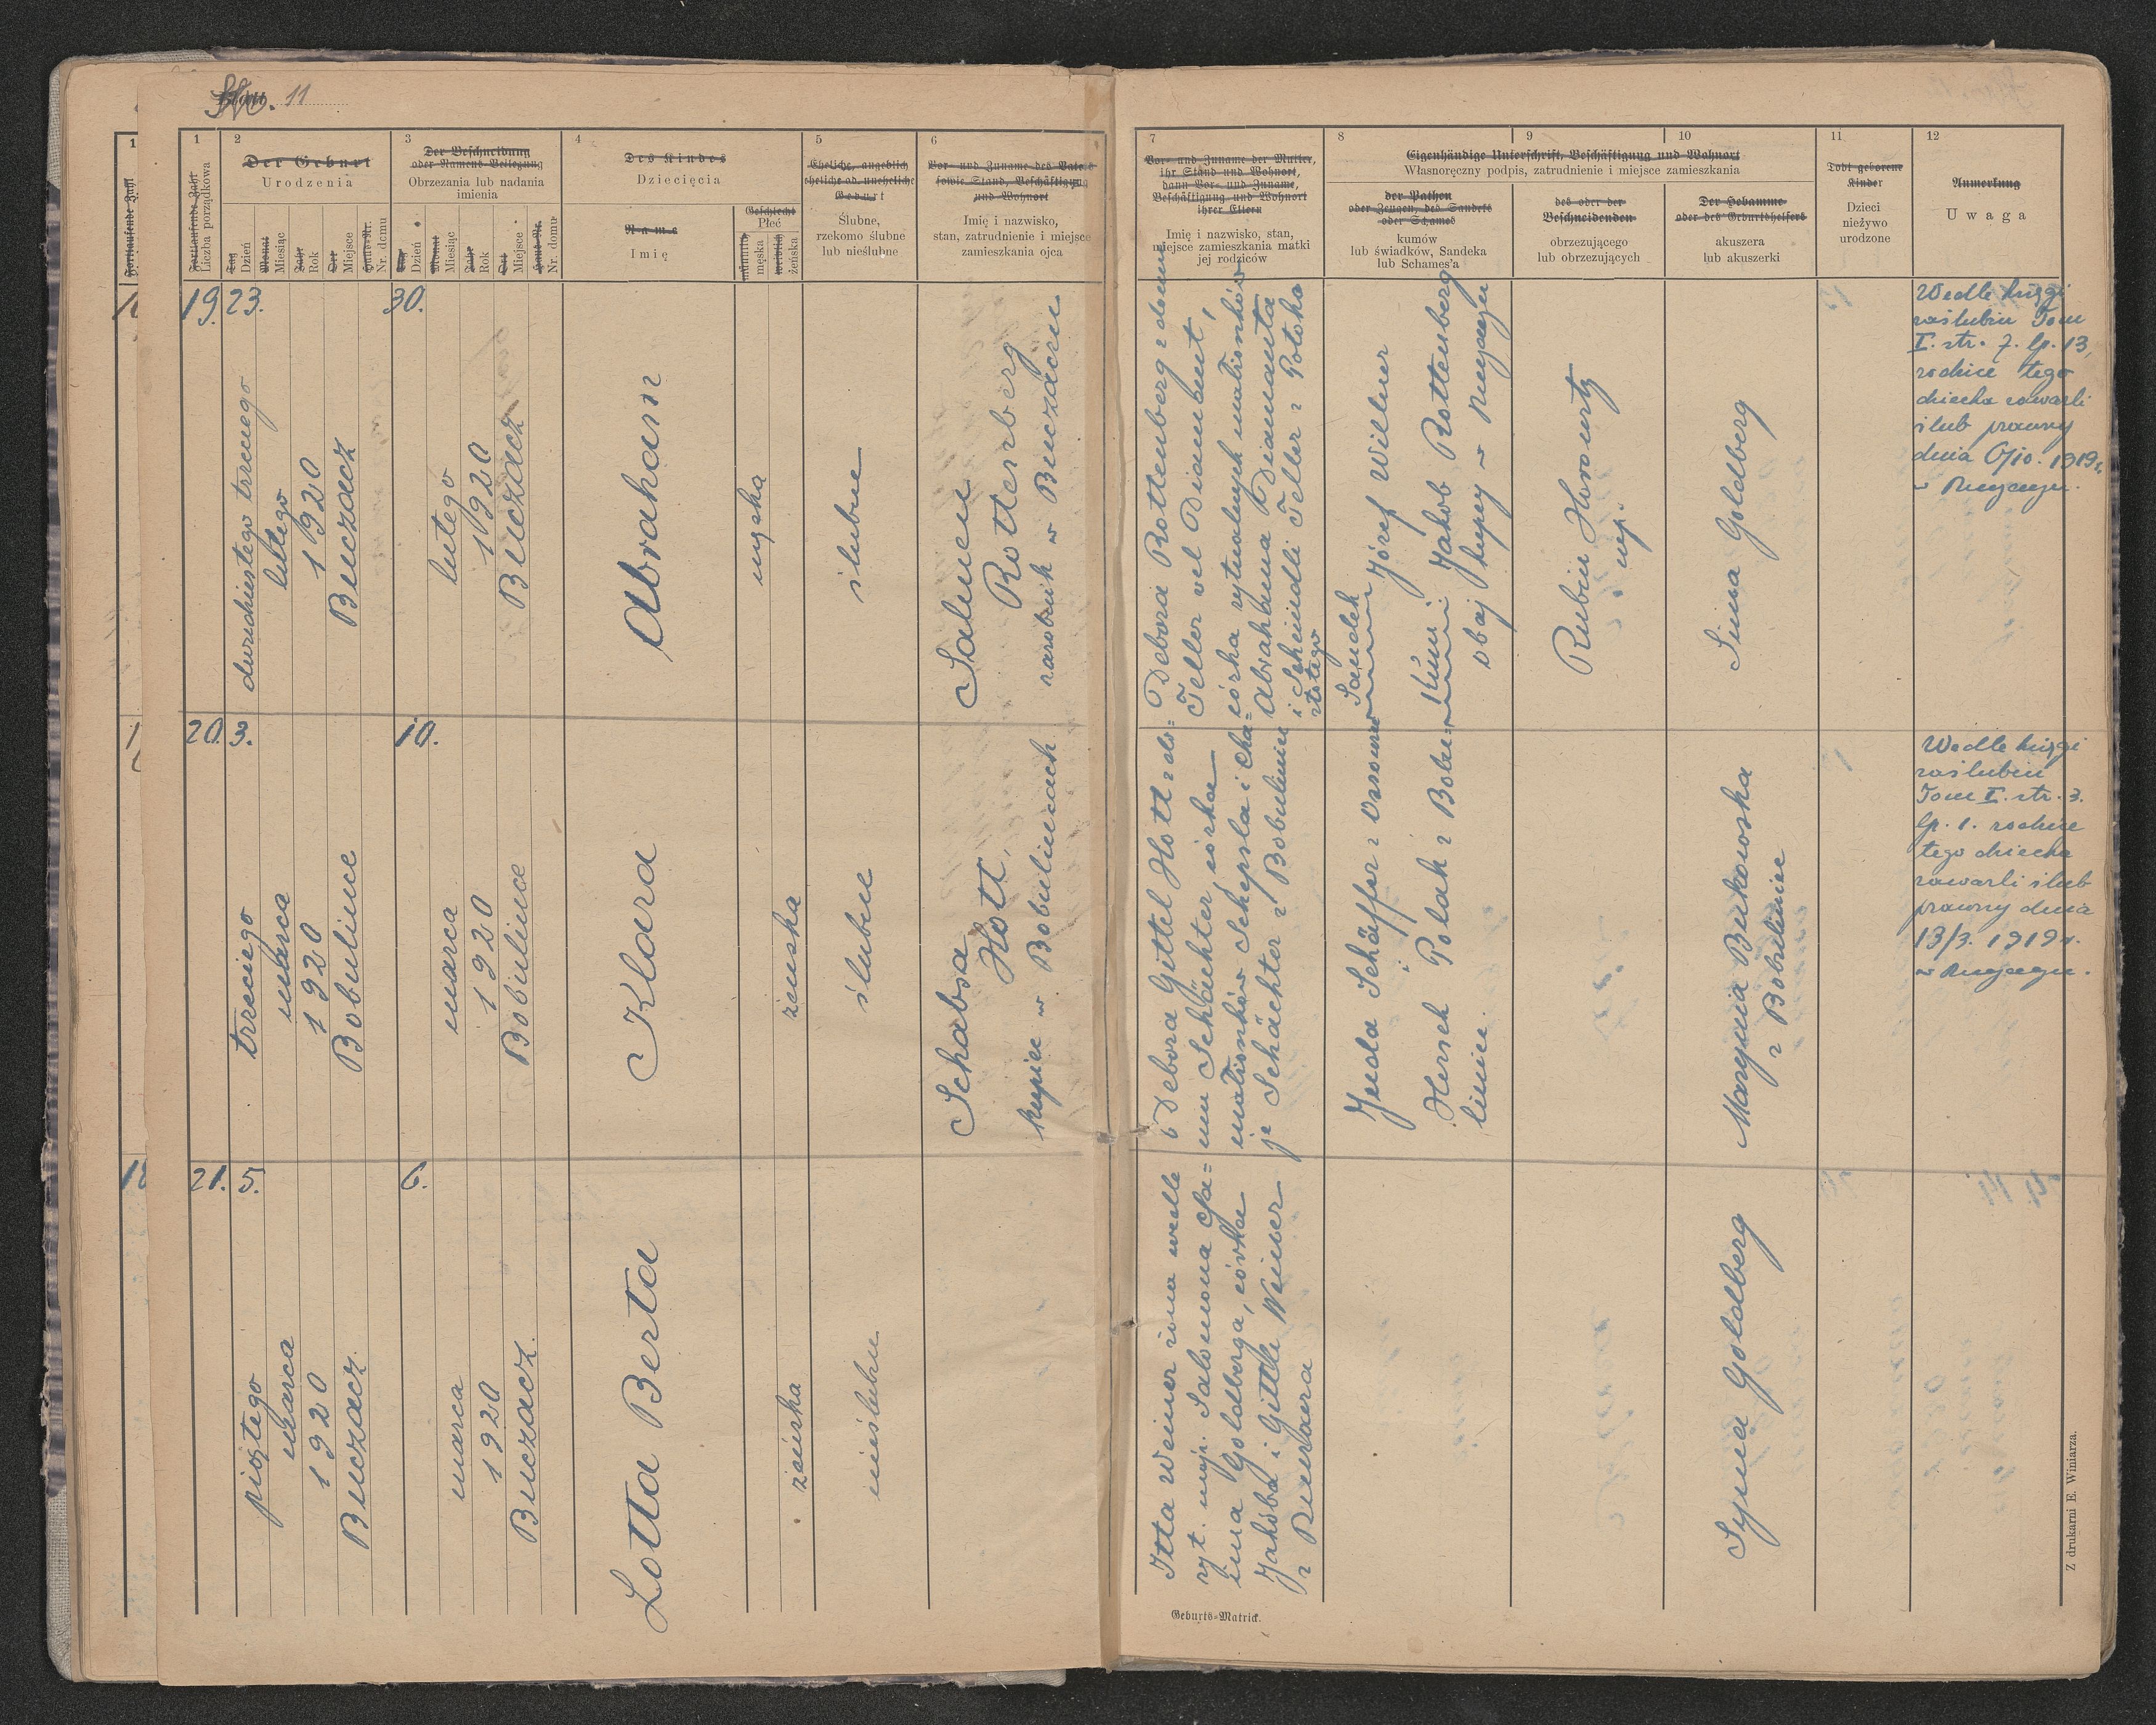 Str. 11
1
Fortlaufende Zahl
1
Fortlaufende Zahl
Liczba porządkowa
2
Der Geburt
Urodzenia
Tag
Dzień
Monat
Miesiąc
Jahr
Rok
Ort
Miejsce
Haus-Nr.
Nr. domu
3
Der Beschneidung
oder Namens-Beilegung
Obrzezania lub nadania
imienia
Tag
Dzień
Monat
Miesiąc
Jahr
Rok
Ort
Miejsce
Haus-Nr.
Nr. domu
4
Des Kindes
Dziecięcia
Name
Imię
Geschlecht
Płeć
männlich
męska
weiblich
żeńska
5
Eheliche, angeblich
eheliche od. uneheliche
Geburt
Ślubne,
rzekomo ślubne
lub nieślubne
6
Vor- und Zuname des Vaters
sowie Stand, Beschäftigung
und Wohnort
Imię i nazwisko,
stan, zatrudnienie i miejsce
zamieszkania ojca
7
Vor- und Zuname der Mutter,
ihr Stand und Wohnort,
dann Vor- und Zuname,
Beschäftigung und Wohnort
ihrer Eltern
Imię i nazwisko, stan,
miejsce zamieszkania matki
jej rodziców
8
9
10
Eigenhändige Unterschrift, Beschäftigung und Wohnort
Własnoręczny podpis, zatrudnienie i miejsce zamieszkania
der Pathen
oder Zeugen, des Sandeks
oder Schames
kumów
lub świadków, Sandeka
lub Schames'a
des oder der
Beschneidenden
obrzezującego
lub obrzezujących
Der Hebamme
oder des Geburtshelfers
akuszera
lub akuszerki
11
Todt geborene
Kinder
Dzieci
nieżywo
urodzone
12
Anmerkung
Uwaga
19.
23.
dwudziestego trzeciego
lutego
1920
Buczacz
30.
lutego
1920
Buczacz
Abraham
męska
ślubne
Salmen
Rottenberg
zarobnik w Buczaczu
Debora Rottenberg z domu
Teller vel Diamant,
córka rytualnych małżonków
Abrahama Diamanta
i Scheindli Teller z Potoka
złotego
Sandek Józef Wilner
Kum: Jakob Rottenberg
obaj kupcy w Buczaczu
Rubin Horowitz
mp.
Sima Goldberg
Wedle księgi
zaślubin Tom
I. str. 7. lp. 13,
rodzice tego
dziecka zawarli
ślub prawny
dnia 9/10. 1919 r.
w Buczaczu.
20.
3.
trzeciego
marca
1920
Bobulince
10.
marca
1920
Bobulince
Klara
żeńska
ślubne
Schabsa
Hott,
kupiec w Bobulincach
Debora Gittel Hott z do=
mu Schächter, córka
małżonków Schepsla i Cha=
je Schächter z Bobuliniec
Juda Schäffer z Ossowiec
i
Hersch Polak z Bobu=
liniec.
Maryna Bukowska
z Bobuliniec
Wedle księgi
zaślubin
Tom I. str. 3.
lp. 1. rodzice
tego dziecka
zawarli ślub
prawny dnia
13/3. 1919 r.
w Buczaczu.
21.
5.
piątego
marca
1920
Buczacz.
6.
marca
1920
Buczacz.
Lotta Berta
żeńska
nieślubne
Itta Weiner żona wedle
ryt. mojż. Salomona Cha=
ima Goldberga, córka
Jakóba i Gittle Weiner
z Buczacza
Syma Goldberg
Geburts-Matrick.
Z drukarni E. Winiarza.